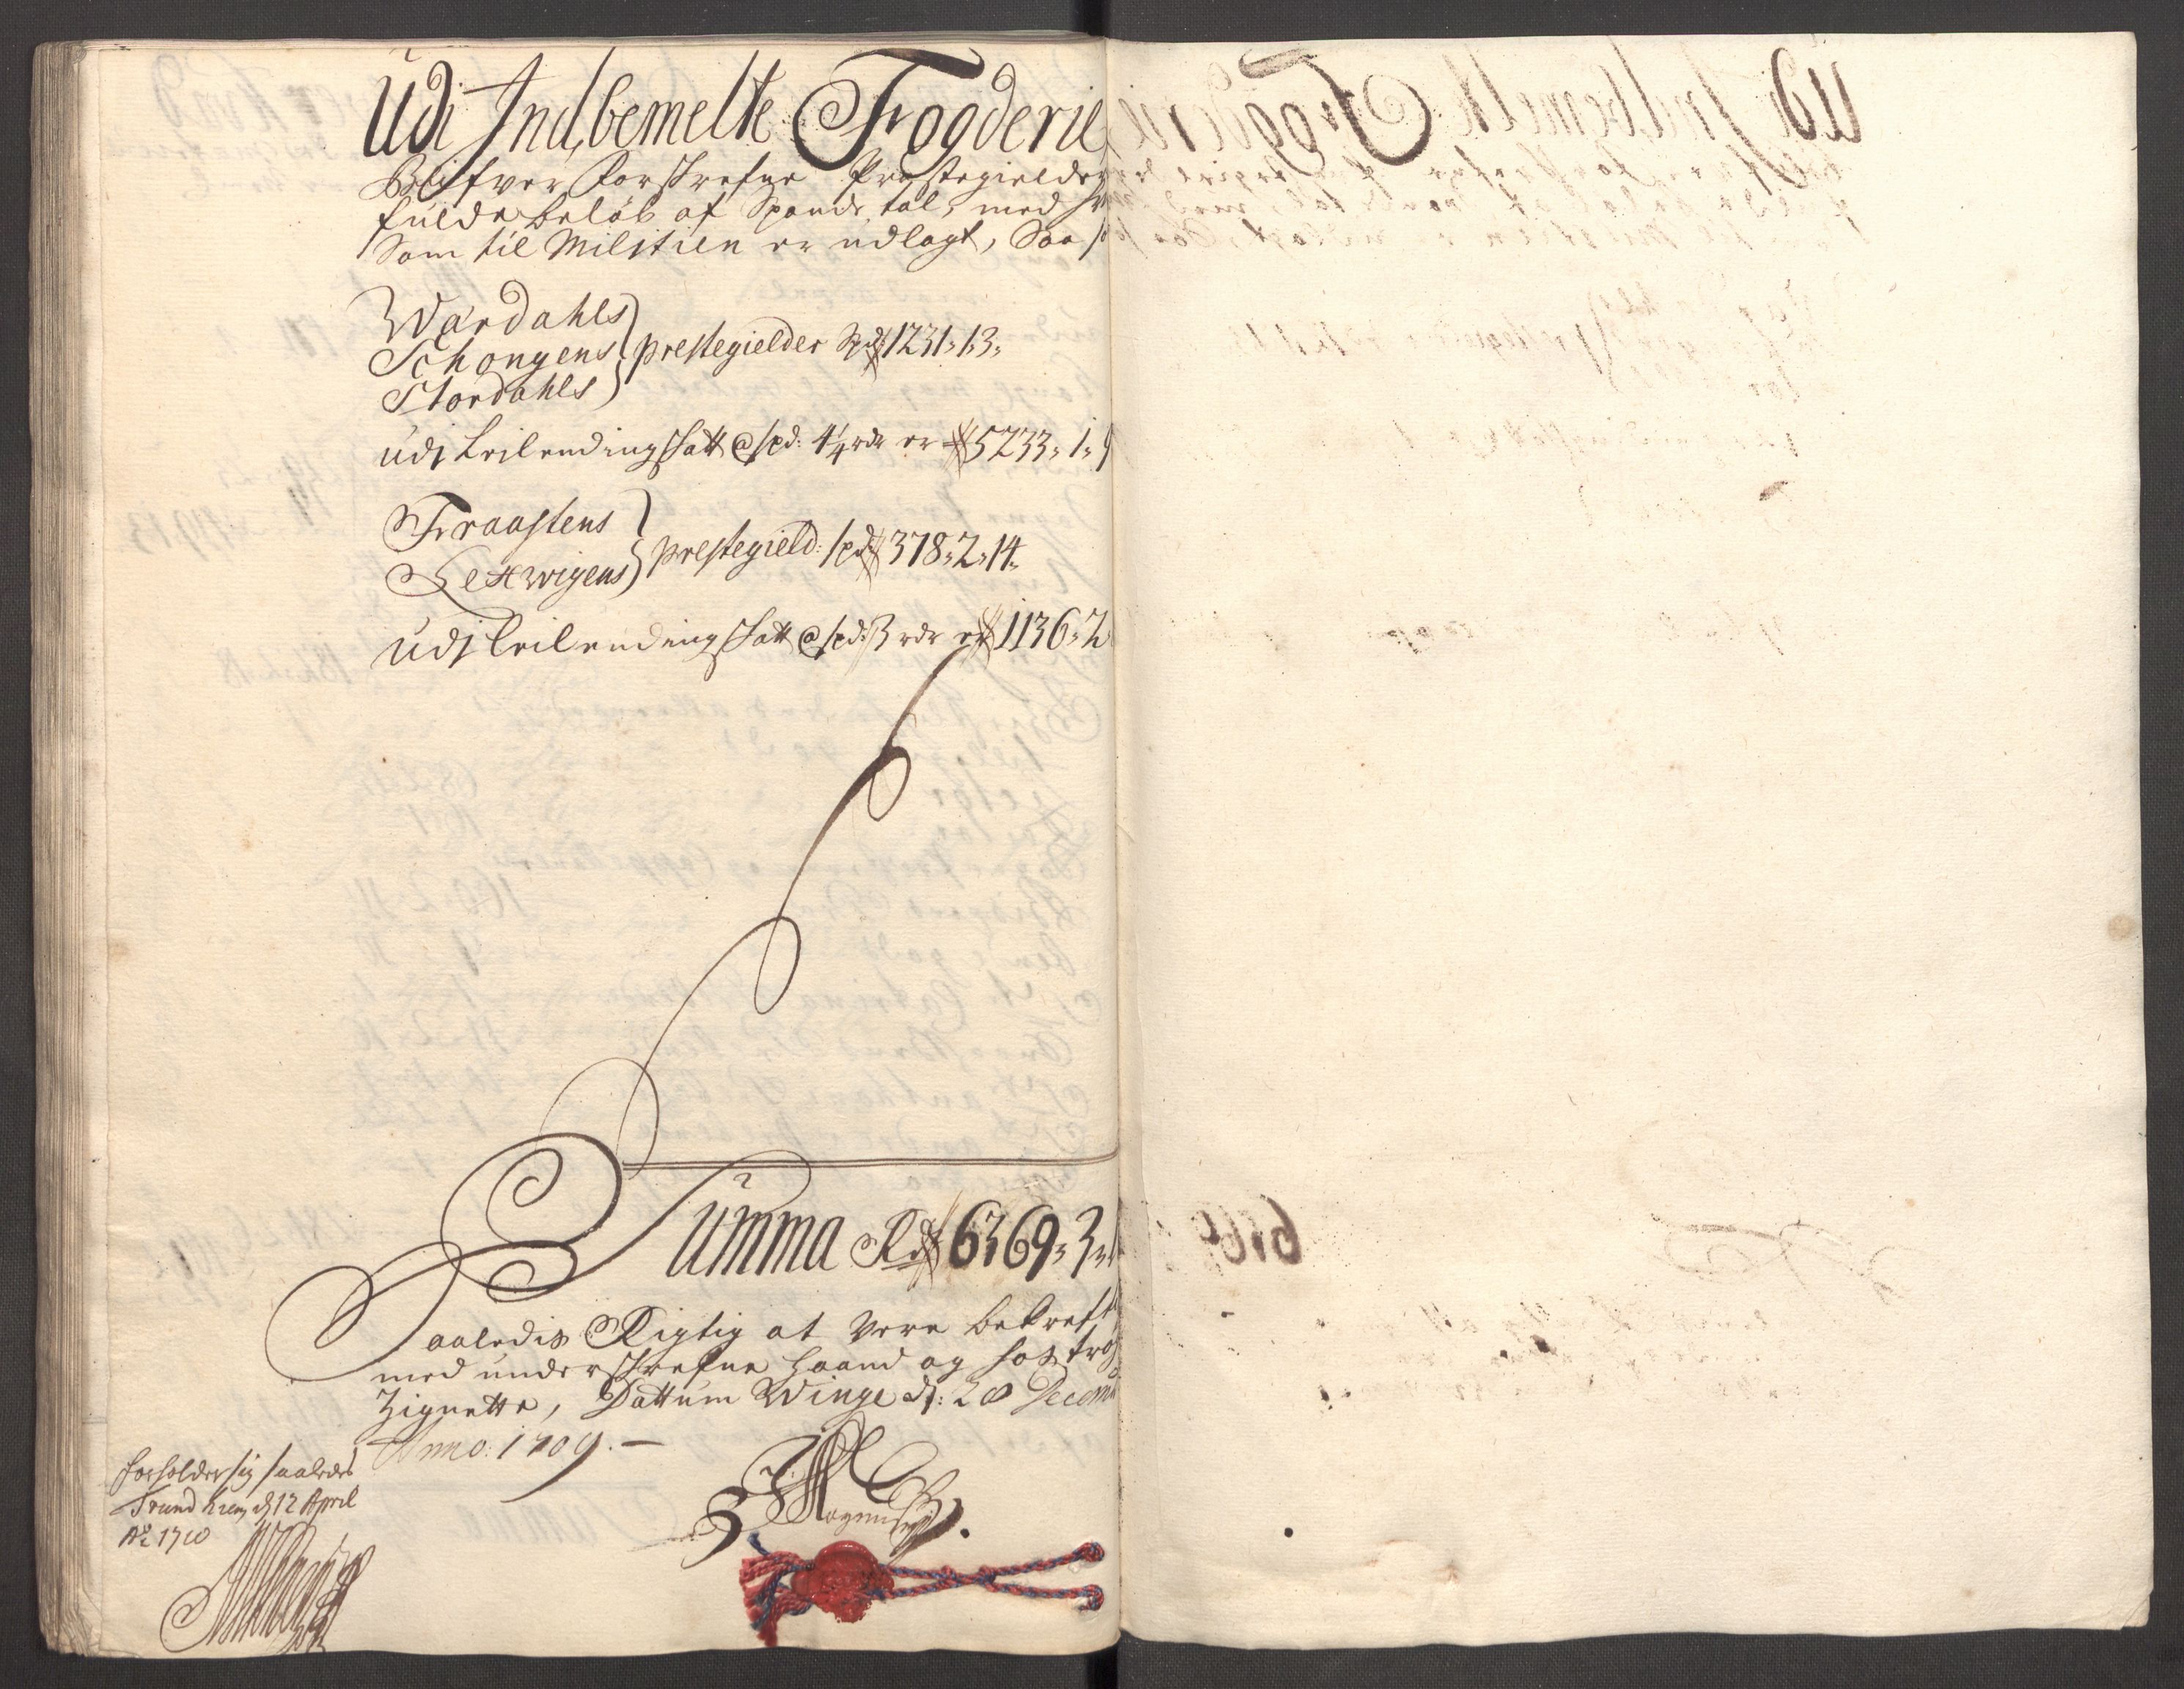 Udi Indbemelte Fogderie
Blifver forskrefne Præstegielder
fulde beløb af Spands tal, med
Som til Militien er udlagt, Saa
Wærdahls
Schongens prestegielder Spd 1231" 1" 3"
Størdahls
udj Leilendingskatt @ spd: 4¼ rdr er 5233" 1"
Fraastens
Lexwigens prestegield: spd 378" 2" 14"
udj Leilendingskatt @ spd: 3 rdr er 1136" 2
Summa Rd 6369" 3"
Saaledis Rigtig at Vere bekreft
med underskrefne Haand og hos
Zignette, Dattum Winge d: 28 Decemb
Anno: 1709.
forholder sig saaledes
Trundhiem d 12 April
Ao 1710